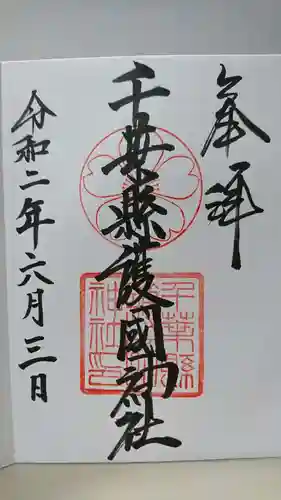 奉拝
千葉縣護國神社
千葉縣
護國
神社印
令和二年六月三日